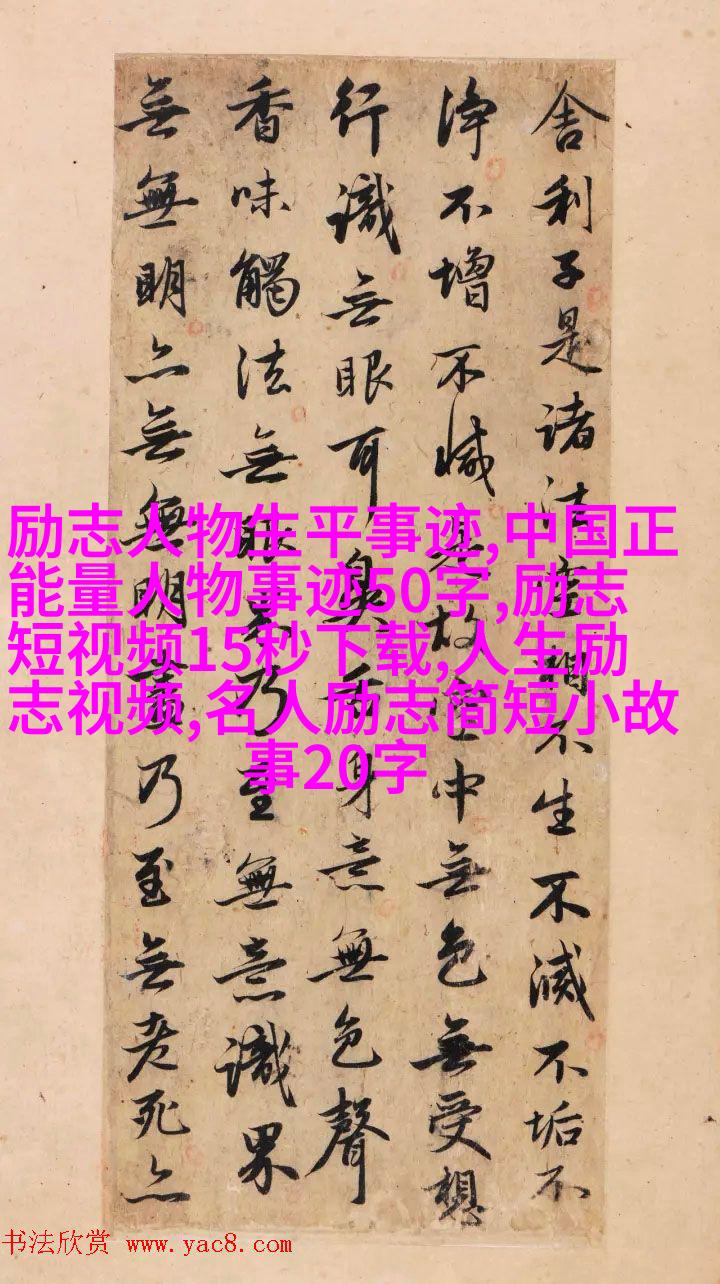 舍利子是諸法空相不生不滅不垢不
淨不增不減是故空中無色無受想
行識無眼耳鼻舌身意無色聲
香味觸法無眼界乃至無意識界
無無明亦無無明盡乃至無老死亦
励志人物生平事迹,中国正
能量人物事迹50字,励志
短视频15秒下载,人生励
志视频,名人励志简短小故
事20字
书法欣赏 www.yac8.com